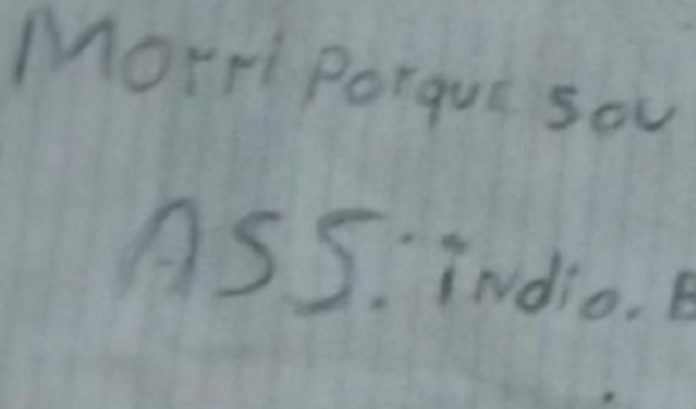 Morri Porque sou
ASS: índio. B